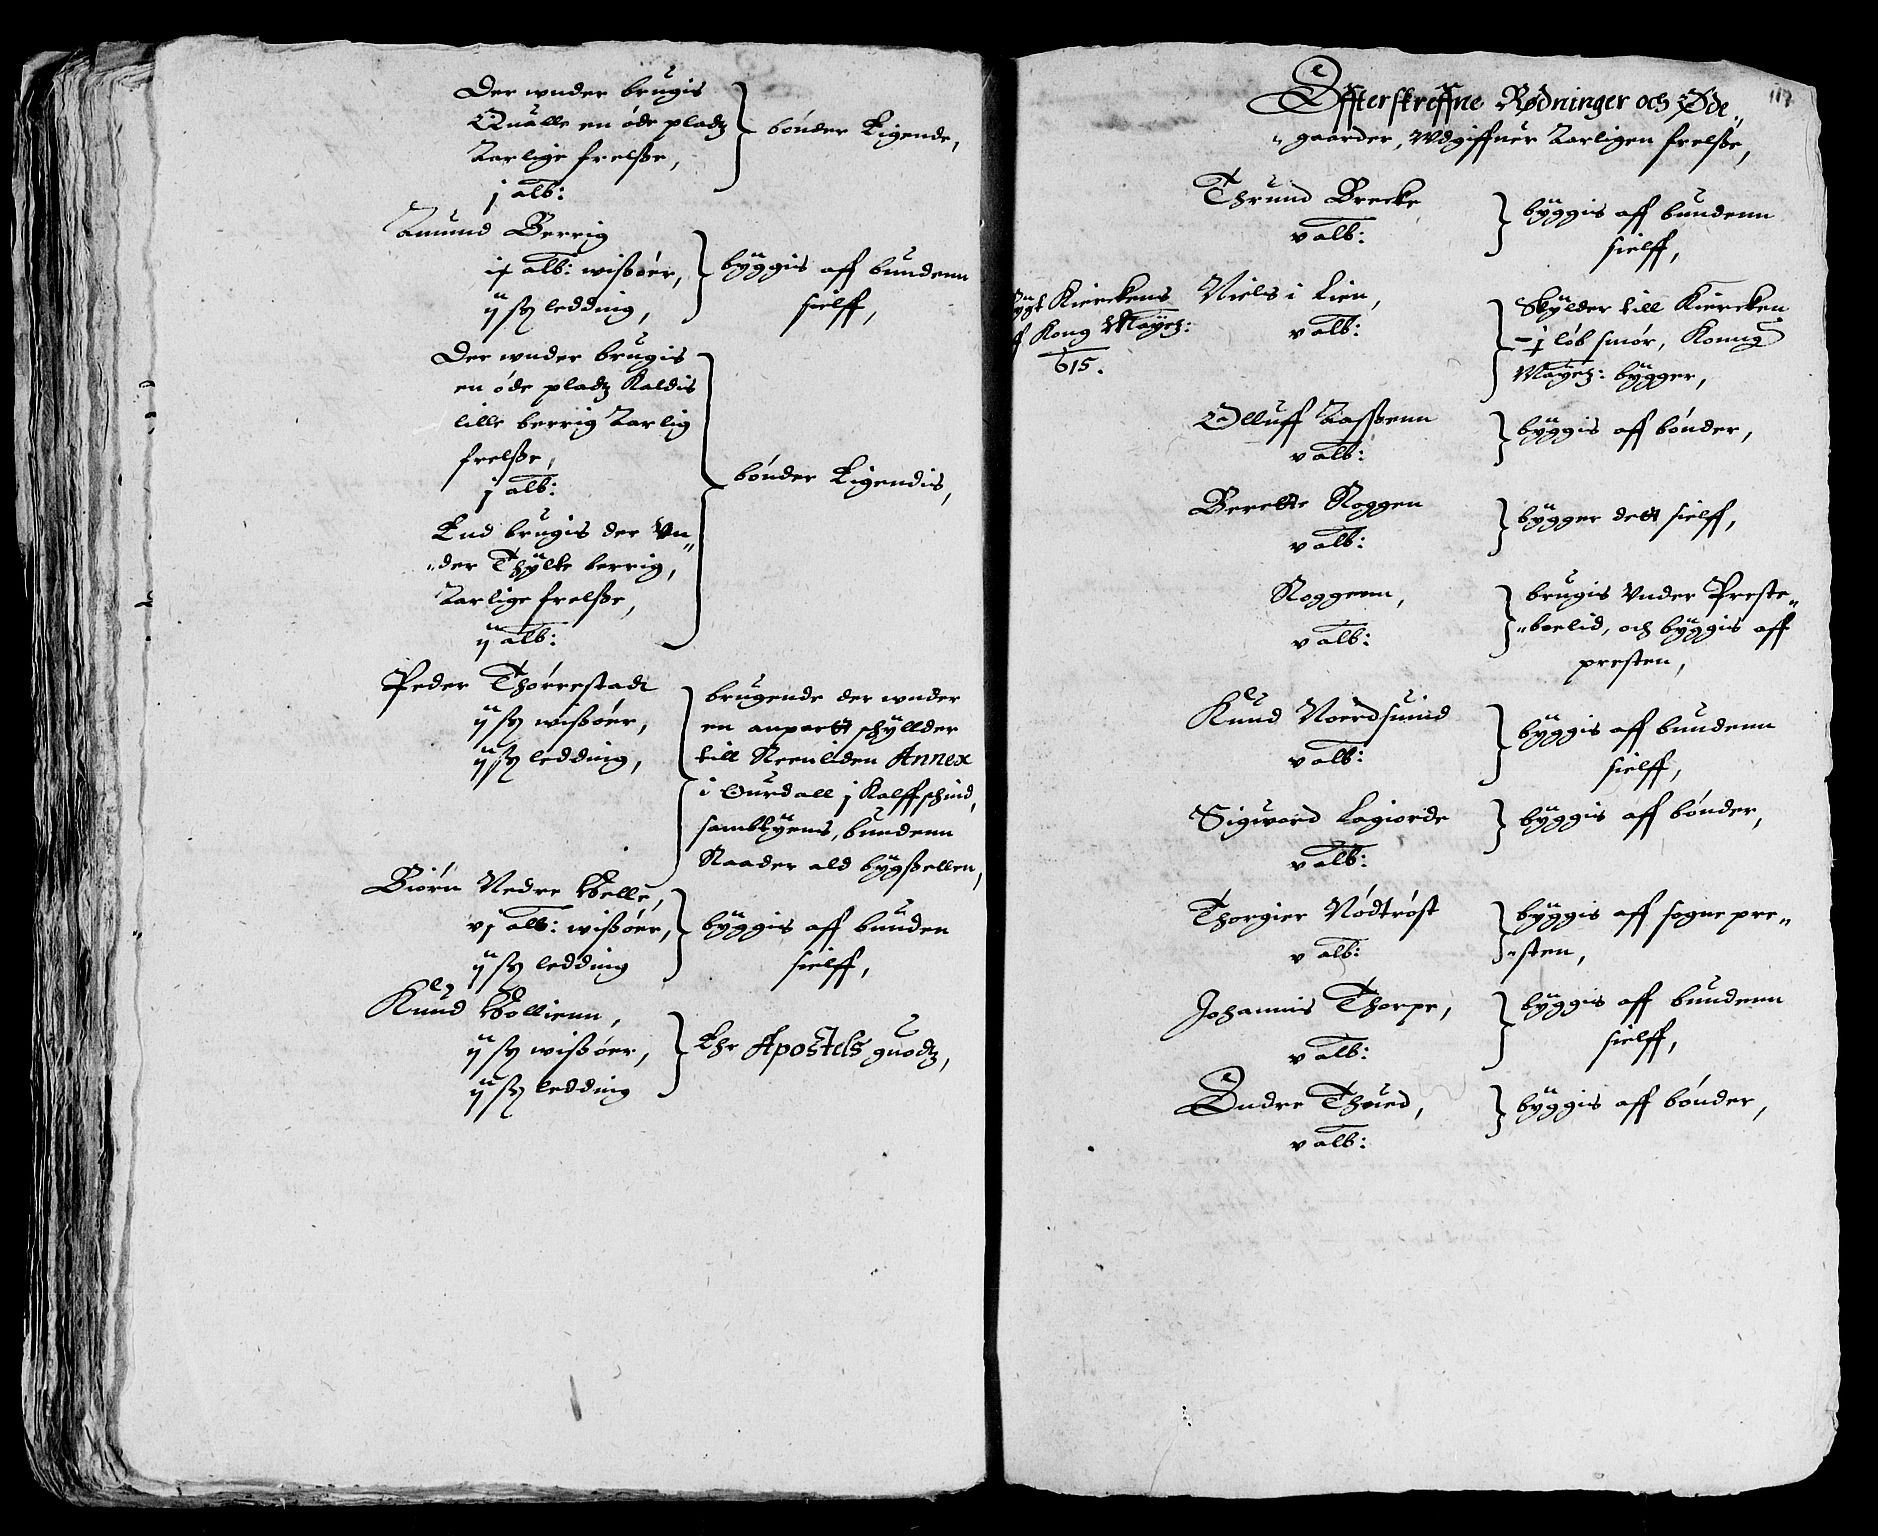 Der wnder brugis
Qualle en øde pladz
Aarlige frelsße,
j alb:
} bønder Eigende,
Amund Berrig
i½ alb: wißøer,
ij ß leding,
} byggis aff bundenn
sielff,
Der wnder brugis
en øde pladz Kaldis
lille berrig Aarlig
frelsße,
j alb:
End brugis der Vn„
„der Thylte berrig,
Aarlige frelsße,
ij alb:
} bønder Eigendis,
Peder Thørrestadt
ij ß wißøer,
ij ß ledding,
brugende der wnder
en anpartt schyllder
till Reenliden Annex
i Ourdall j Kalffschind,
samblyems, bundenn
Raader ald bygßellen,
Biørn Nedre Welle,
vj alb: wißøer,
ij ß ledding
} byggis aff bunden
sielff,
Knud Wollienn,
ij ß wißøer,
ij ß ledding
} Ehr Apostels guodz,
117
Effterskreffne Rødninger och Øde„
„gaarder, Wdgiffuer Aarligen frelsße,
Thrund Brecke
v alb:
} byggis aff bundenn
sielff,
bygt Kierckens
aff Kong Mayst:
615.
Niels i Lien,
v alb:
Skylder till Kiercken
½ løb smør, Konng
Mayst: bygger,
Olluff Aassenn
v alb:
} byggis aff bønder,
Berette Roggen
v alb:
} bygger dett sielff,
Roggenn,
v alb:
} brugis Vnder Preste„
„boelid, och byggis aff
presten,
Knud Noerdsund
v alb:
} byggis aff bundenn
sielff,
Siguord Lagiorde
v alb:
} byggis aff bønder,
Thorgier Nødtrøst
v alb:
} byggis aff sogne pre„
„sten,
Johannis Thorpe,
v alb:
} byggis aff bundenn
sielff,
Endre Thued,
v alb:
} byggis aff bønder,